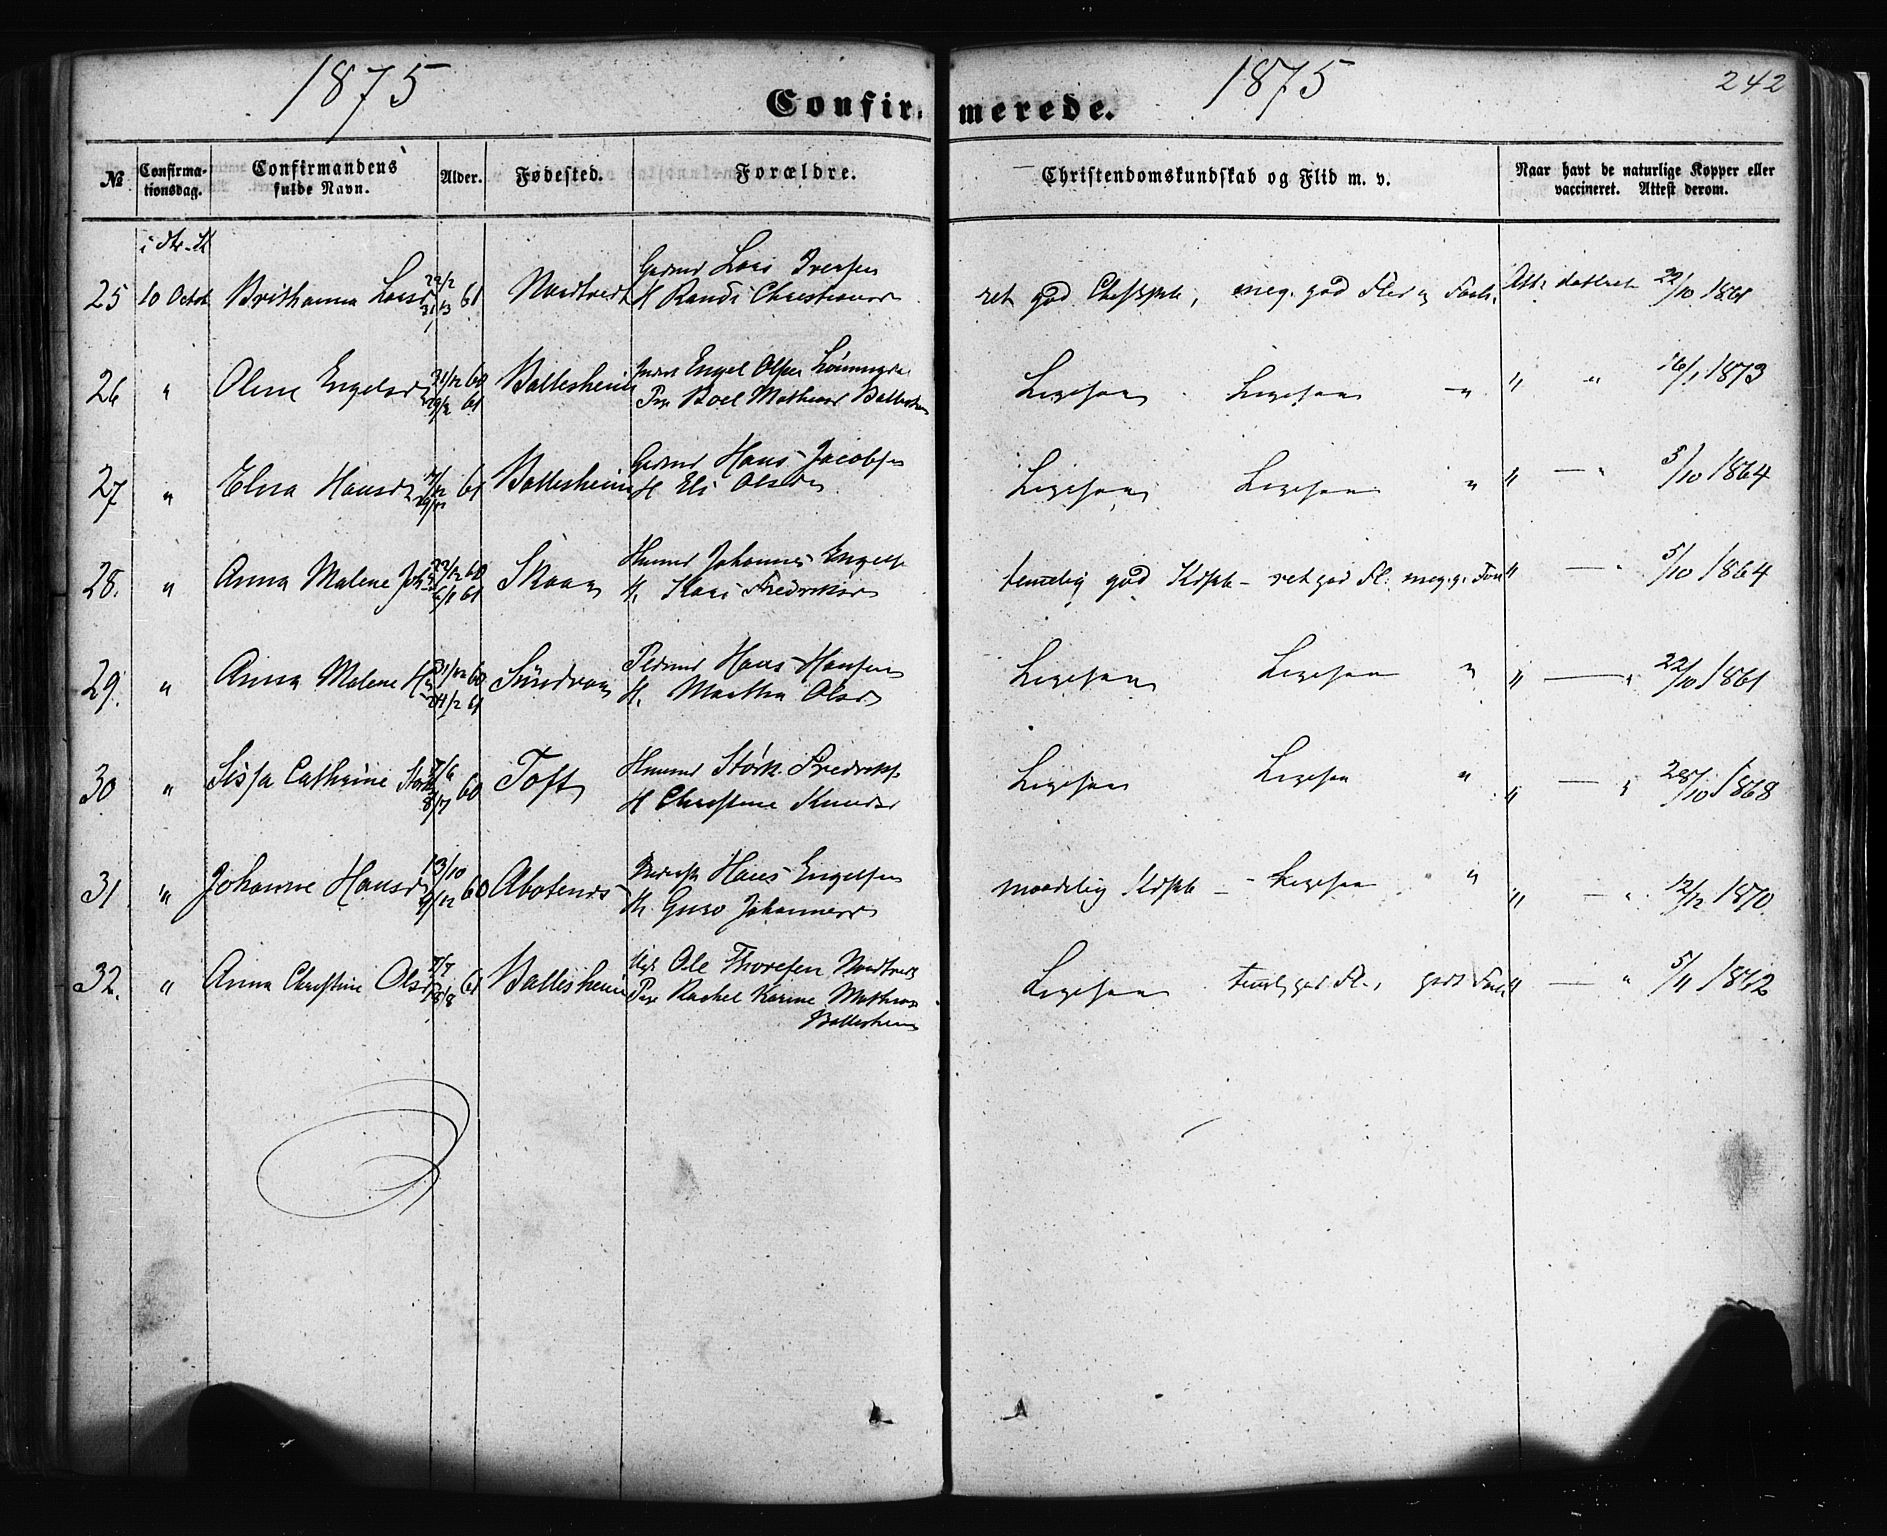 1875
1875
242
Confir-
merede.
№
Confirma-
tionsdag.
Confirmandens
fulde Navn.
Alder.
Fødested.
Forældre.
Christendomskundskab og Flid m. v.
Naar havt de naturlige Kopper eller
vaccineret. Attest derom.
25 10 Octob Brithanna Larsd 61 Nordtvedt
Gaardmd Lars Iversen
H Randi Christiansd
ret god meg. god Flid og Forh. Att. dateret 22/10 1861
26 " Oline Engelsd 31/12 60 Ballesheim
Engel Olsen
Pige Boel Mathiasd Ballesheim
Ligesaa Ligesaa " " " 16/1 1873
27 " Elisa Hansd 61 Ballesheim
Gaardmd Hans Jacobsen
H Eli Olsd
Ligesaa Ligesaa " " — " 5/10 1864
28. " Anna Malene 60 61 Skaar
Huusmd Johannes Engelss
H. Kari Fredriksd
temelig god Kdskb - ret god Fl. meg. g. Forh " — " 5/10 1864
29. " Anna Malene 31/12 60 61 Sundvor
Hans Hansen
H. Martha Olsd
Ligesaa Ligesaa " " — " 22/10 1861
30 " Sissa Cathrine 7/6 8/7 60 Toft
Huusmd Størk Fredrikss
H Christine Knudsd
Ligesaa Ligesaa " " — " 28/10 1868
31 " Johanne Hansd 13/10 60
Hans Engelsen
H. Guro Johannesd
maadelig Kdskb - Ligesaa " " — " 12/12 1870
32. " Anna Christine Olsd 7/7 61 Ballesheim
Ole Thoresen Nordtvedt
Pige Rachel Karine Mathiasd
Ballesheim
Ligesaa temlg god Fl., godt Forh " — " 5/11 1872